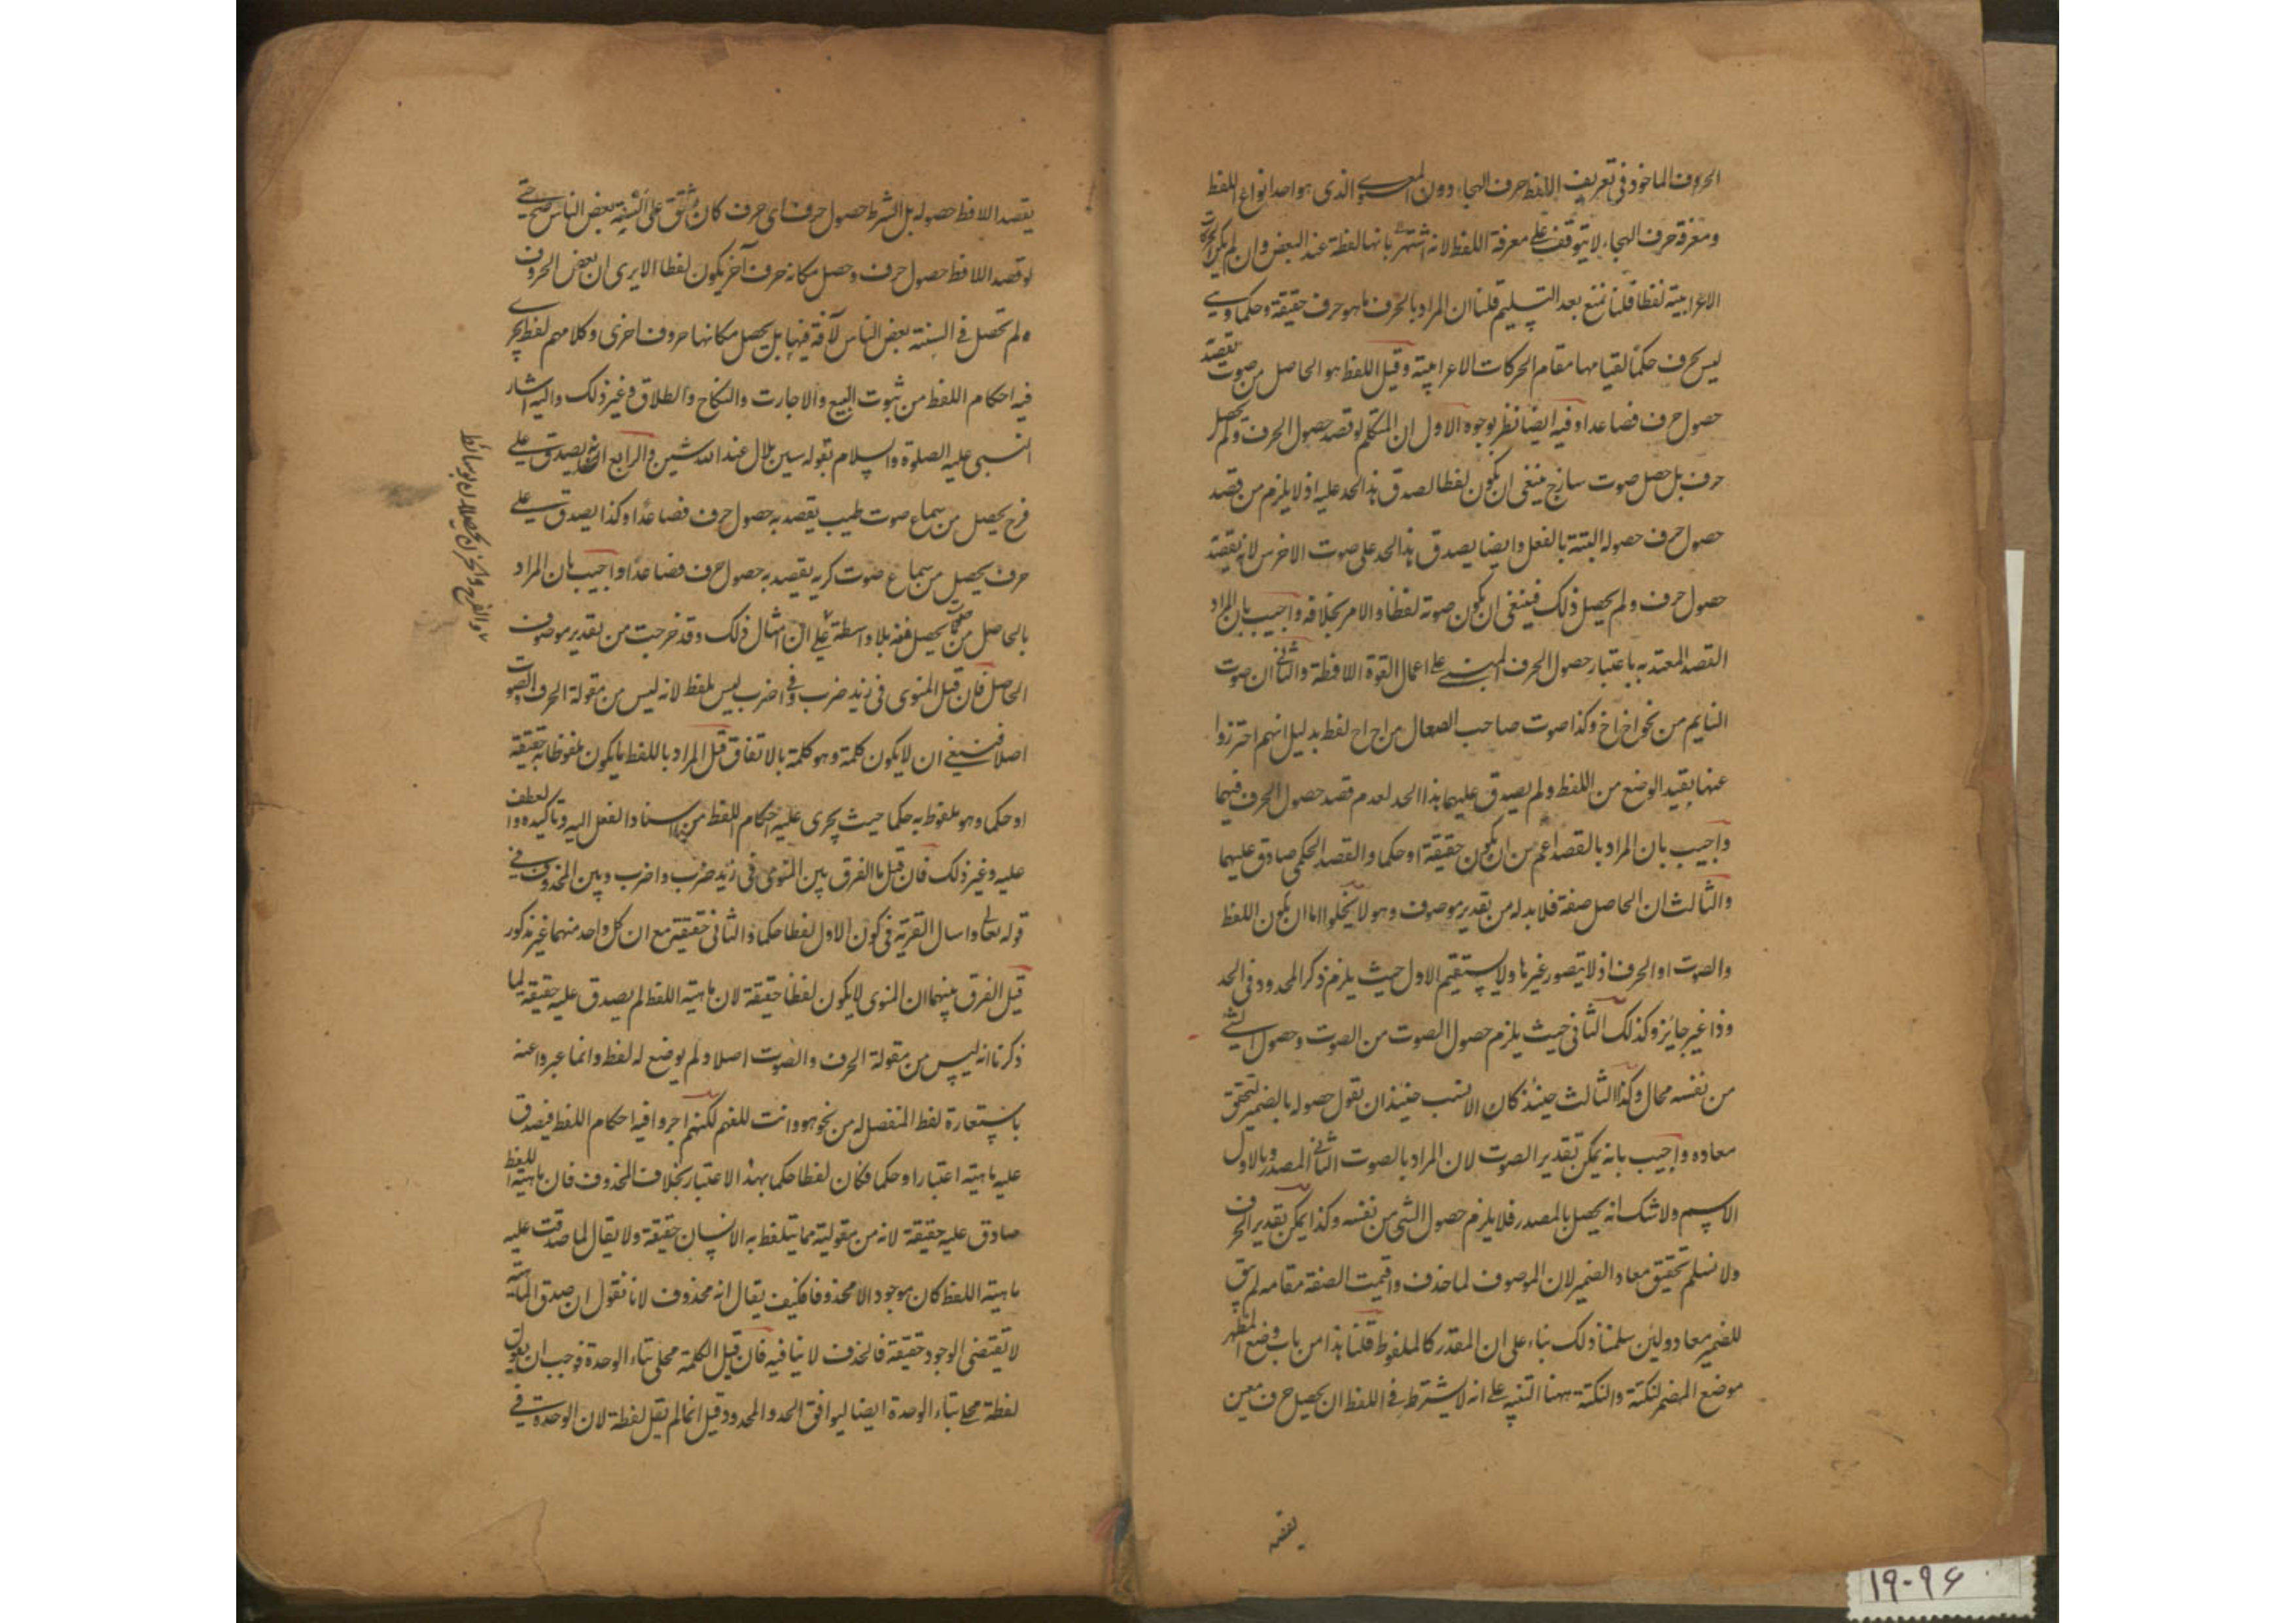 الحروف الماخوذ فى تعريف اللفظ حرف الهجاء دون المعنى الذى هو احد انواع اللفظ
ومعرفة حرف الهجاء لا يتوقف على معرفة اللفظ لانه اشتهر بانها لفظة عند البعض وان لم يكن الحركات
الاعرابية لفظا قلنا نمنع بعد التسليم قلنا ان المراد بالحرف ما هو حرف حقيقة وحكما وهى
ليس بحرف حكما لقيامها مقام الحركات الاعرابية وقيل اللفظ هو الحاصل من صوت يقصد
حصول حرف فصاعدا وفيه ايضا نظر بوجوه الاول ان المتكلم لو قصد حصول الحرف ولم يحصل
حرف بل حصل صوت سازج ينبغى ان يكون لفظا لصدق هذا الحد عليه اذ لا يلزم من قصد
حصول حرف حصوله البتة بالفعل وايضا يصدق هذا الحد على صوت الاخرس لانه يقصد
حصول حرف ولم يحصل ذلك فينبغى ان يكون صوته لفظا والامر بخلافه واجيب بان المراد
القصد المعتد به باعتبار حصول الحرف المبنى على اعمال القوة اللافظة والثانى ان صوت
النايم من نحو اخ اخ وكذا صوت صاحب الصعال من اح اح لفظ بدليل انهم احترزوا
عنها بقيد الوضع من اللفظ ولم يصدق عليهما هذا الحد لعدم قصد حصول الحرف فيهما
واجيب بان المراد بالقصد اعم من ان يكون حقيقة او حكما والقصد الحكمى صادق عليهما
والثالث ان الحاصل صفة فلا بد له من تقدير موصوف وهو لا يخلوا اما ان يكون اللفظ
والصوت او الحرف اذ لا يتصور غيرها ولا يستقيم الاول حيث يلزم ذكر المحدود فى الحد
وذا غير جائز وكذلك الثانى حيث يلزم حصول الصوت من الصوت وحصول الشئ
من نفسه محال وكذا الثالث حينئذ كان الانسب حينئذ ان تقول حصوله بالضمير لتحقق
معاده واجيب بانه يمكن تقدير الصوت لان المراد بالصوت الثانى المصدر وبالاول
الاسم ولا شك انه يحصل بالمصدر فلا يلزم حصول الشئ من نفسه وكذا يمكن تقدير الحرف
ولا نسلم تحقيق معاد الضمير لان الموصوف لما حذف واقيمت الصفة مقامه لم يبق
للضمير معاد ولئن سلمنا ذلك بناء على ان المقدر كالملفوظ قلنا هذا من باب وضع المظهر
موضع المضمر لنكتة والنكتة ههنا التنبيه على انه لا يشترط فى اللفظ ان يحصل حرف معين
يقصد
يقصد اللافظ حصوله بل الشرط حصول حرف اى حرف كان على السنة بعض الناس حتى
لو قصد اللافظ حصول حرف وحصل مكانه حرف آخر يكون لفظا الا يرى ان بعض الحروف
لم تحصل فى السنة بعض الناس لآفة فيها بل يحصل مكانها حروف اخرى وكلامهم لفظ يجرى
فيه احكام اللفظ من ثبوت البيع والاجارت والنكاح والطلاق وغير ذلك واليه اشار
النبى عليه الصلوة والسلام بقوله سين بلال عند الله شين والرابع انه يصدق على
فرح يحصل من سماع صوت طيب يقصد به حصول حرف فصاعدا وكذا يصدق على
حرف يحصل من سماع صوت كريه يقصد به حصول حرف فصاعدا واجيب بان المراد
بالحاصل من يحصل منه بلا واسطة على ان امثال ذلك وقد خرجت من تقدير موصوف
الحاصل فان قيل المنوى فى زيد ضرب وفى اضرب ليس بلفظ لانه ليس من مقولة الحرف والصوت
اصلا فينبغى ان لا يكون كلمة وهو كلمة بالاتفاق قيل المراد باللفظ ما يكون ملفوظا به حقيقة
او حكما وهو ملفوظ به حكما حيث يجرى عليه احكام اللفظ من اسناد الفعل اليه وتاكيده والعطف
عليه وغير ذلك فان قيل ما الفرق بين المنوى فى زيد ضرب واضرب وبين المحذوف فى
قوله تعالى واسال القرية فى كون الاول لفظا حكما والثانى حقيقة مع ان كل واحد منهما غير مذكور
قيل الفرق بينهما ان المنوى لا يكون لفظا حقيقة لان ماهية اللفظ لم يصدق عليه حقيقة لما
ذكرنا انه ليس من مقولة الحرف والصوت اصلا ولم يوضع له لفظ وانما عبروا عنه
باستعارة لفظ المنفصل له من نحو هو وانت للفهم لكنهم اجروا فيه احكام اللفظ فيصدق
عليه ماهية اعتبارا وحكما فكان لفظا حكما بهذا الاعتبار بخلاف المحذوف فان ماهية اللفظ
صادق عليه حقيقة لانه من مقولية مما يتلفظ به الانسان حقيقة ولا يقال لما صدقت عليه
ماهية اللفظ كان موجودا لا محذوفا فكيف يقال انه محذوف لانا نقول ان صدق الماهية
لا تقتضى الوجود حقيقة فالحذف لا ينافيه فان قيل الكلمة محلى بتاء الوحدة فوجب ان يقول
لفظة محلى بتاء الوحدة ايضا ليوافق الحد والمحدود قيل انما لم يقل لفظة لان الوحدة فى
والفرح والحزن يحصلان بوسائط
۱۹۰۹۶